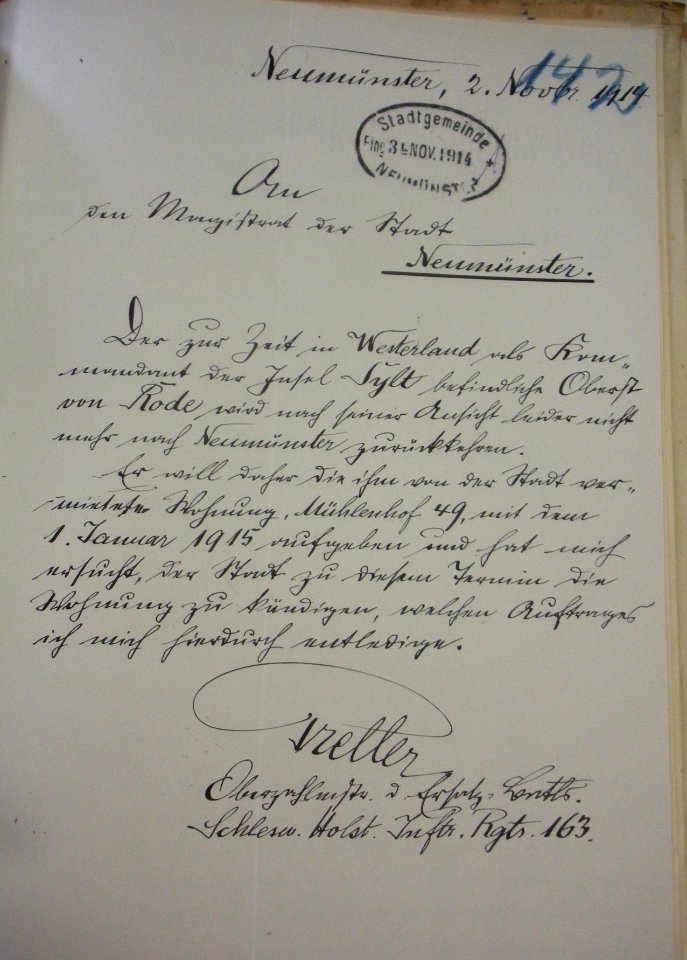 Neumünster, 2. Novbr. 1914.
142
Stadtgemeinde
Eing. 3. NOV. 1914
NEUMÜNSTER
An
den Magistrat der Stadt
Neumünster.
Der zur Zeit in Westerland als Kom-
mandant der Insel Sylt befindliche Oberst
von Rode wird nach seiner Ansicht leider nicht
mehr nach Neumünster zurückkehren.
Er will daher die ihm von der Stadt ver-
mietete Wohnung, Mühlenhof 49, mit dem
1. Januar 1915 aufgeben und hat mich
ersucht, der Stadt zu diesem Termin die
Wohnung zu kündigen, welchen Auftrages
ich mich hierdurch entledige.
Oberzahlmstr. d. Ersatz-Batls.
Schlesw. Holst. Inftr. Rgts. 163.